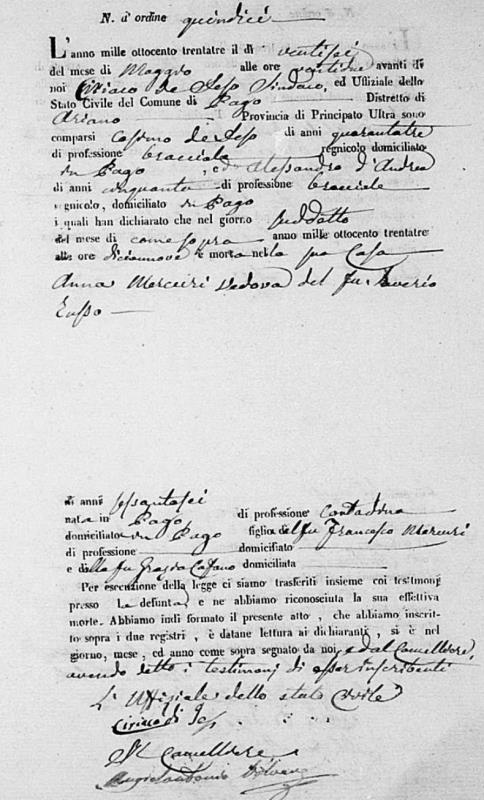 N. d'ordine quindici
L'anno mille ottocento trentatre il dì ventisei
del mese di Maggio alle ore ventidue avanti di
noi Ciriaco de Jeso Sindaco, ed Uffiziale dello
Stato Civile del Comune di Pago Distretto di
Ariano Provincia di Principato Ultra sono
comparsi Cosimo de Jeso di anni quarantatre
di professione bracciale regnicolo domiciliato
in Pago, e Alessandro d'Andrea
di anni cinquanta di professione bracciale
regnicolo, domiciliato in Pago
i quali han dichiarato che nel giorno suddetto
del mese di come sopra anno mille ottocento trentatre
alle ore diciannove è morta nella sua Casa
Anna Mercuri Vedova del fu Saverio
di anni sessantasei
nata in Pago di professione Contadina
domiciliata in Pago figlia del fu Francesco Mercuri
di professione domiciliato
e della fu Grazia Catano domiciliata
Per esecuzione della legge ci siamo trasferiti insieme coi testimonj
presso la defunta e ne abbiamo riconosciuta la sua effettiva
morte. Abbiamo indi formato il presente atto, che abbiamo inscrit-
to sopra i due registri, e datane lettura ai dichiaranti, si è nel
giorno, mese, ed anno come sopra segnato da noi, e dal Cancelliere,
avendo detto i testimonj di esser inscribenti
L'Uffiziale dello stato Civile
Ciriaco di Jeso
Il Cancelliere